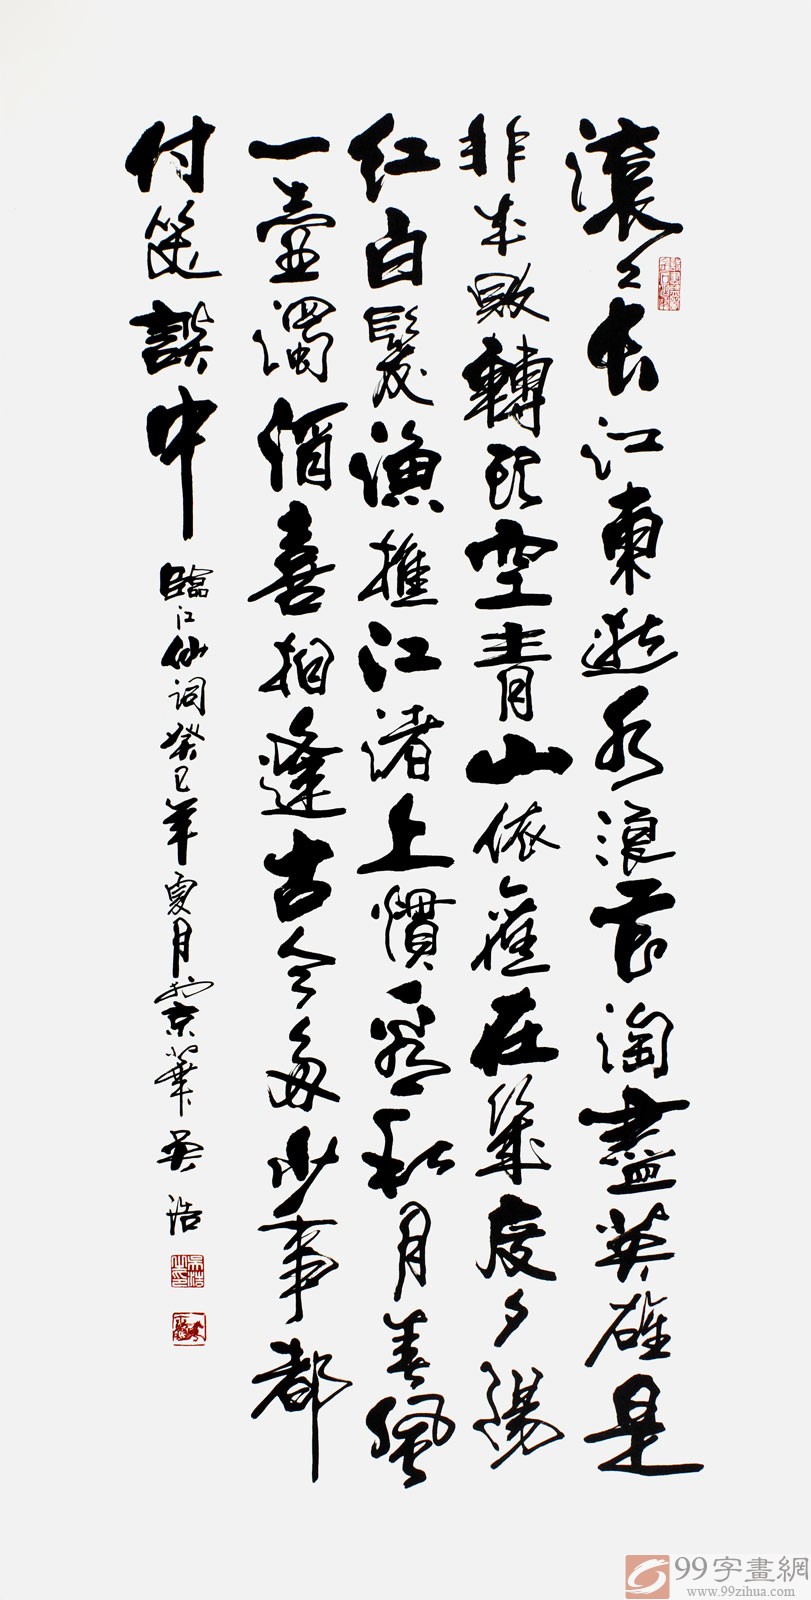 滚々长江東逝水浪花淘盡英雄是
非成敗轉頭空青山依舊在幾度夕陽
红白髮渔樵江渚上慣看秋月春風
一壺濁酒喜相逢古今多少事都
付笑談中
臨江仙词癸巳年夏月於京華吴浩
99字畫網
www.99zihua.com